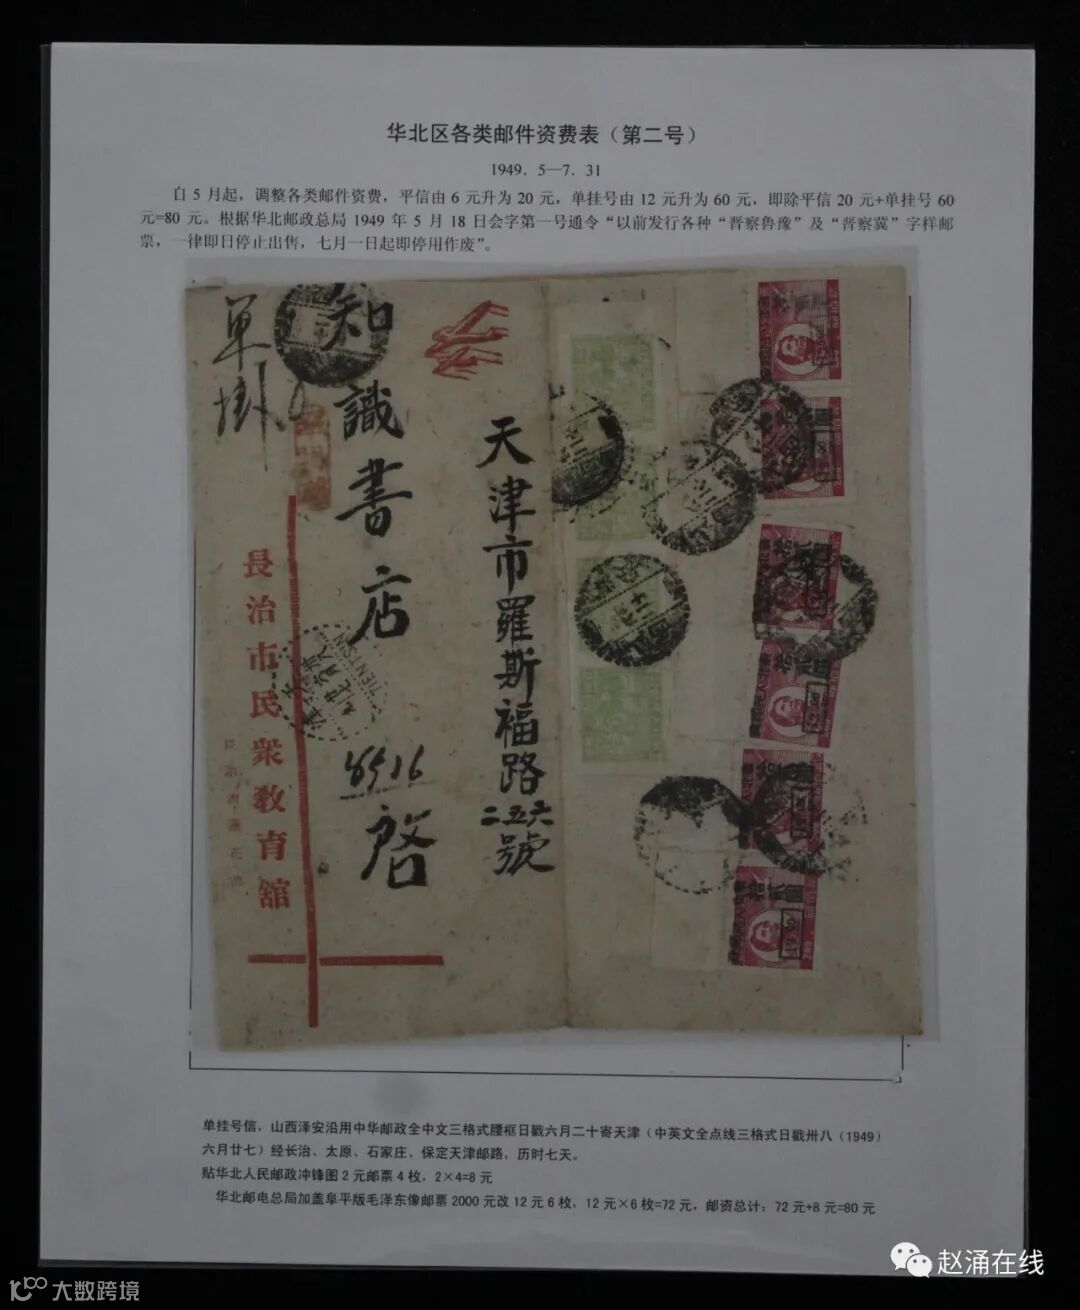 华北区各类邮件资费表（第二号）
1949．5—7．31
自 5 月起，调整各类邮件资费，平信由 6 元升为 20 元，单挂号由 12 元升为 60 元，即除平信 20 元+单挂号 60
元=80 元。根据华北邮政总局 1949 年 5 月 18 日会字第一号通令“以前发行各种“晋察鲁豫”及“晋察冀”字样邮
票，一律即日停止出售，七月一日起即停用作废”。
單掛
知識書店
啓
8516
天津市羅斯福路
二五六號
長治市民衆教育舘
TIENTSIN
单挂号信，山西泽安沿用中华邮政全中文三格式腰框日戳六月二十寄天津（中英文全点线三格式日戳卅八（1949）
六月廿七）经长治、太原、石家庄、保定天津邮路，历时七天。
贴华北人民邮政冲锋图 2 元邮票 4 枚，2×4=8 元
华北邮电总局加盖阜平版毛泽东像邮票 2000 元改 12 元 6 枚，12 元×6 枚=72 元，邮资总计：72 元+8 元=80 元
赵涌在线
大数跨境